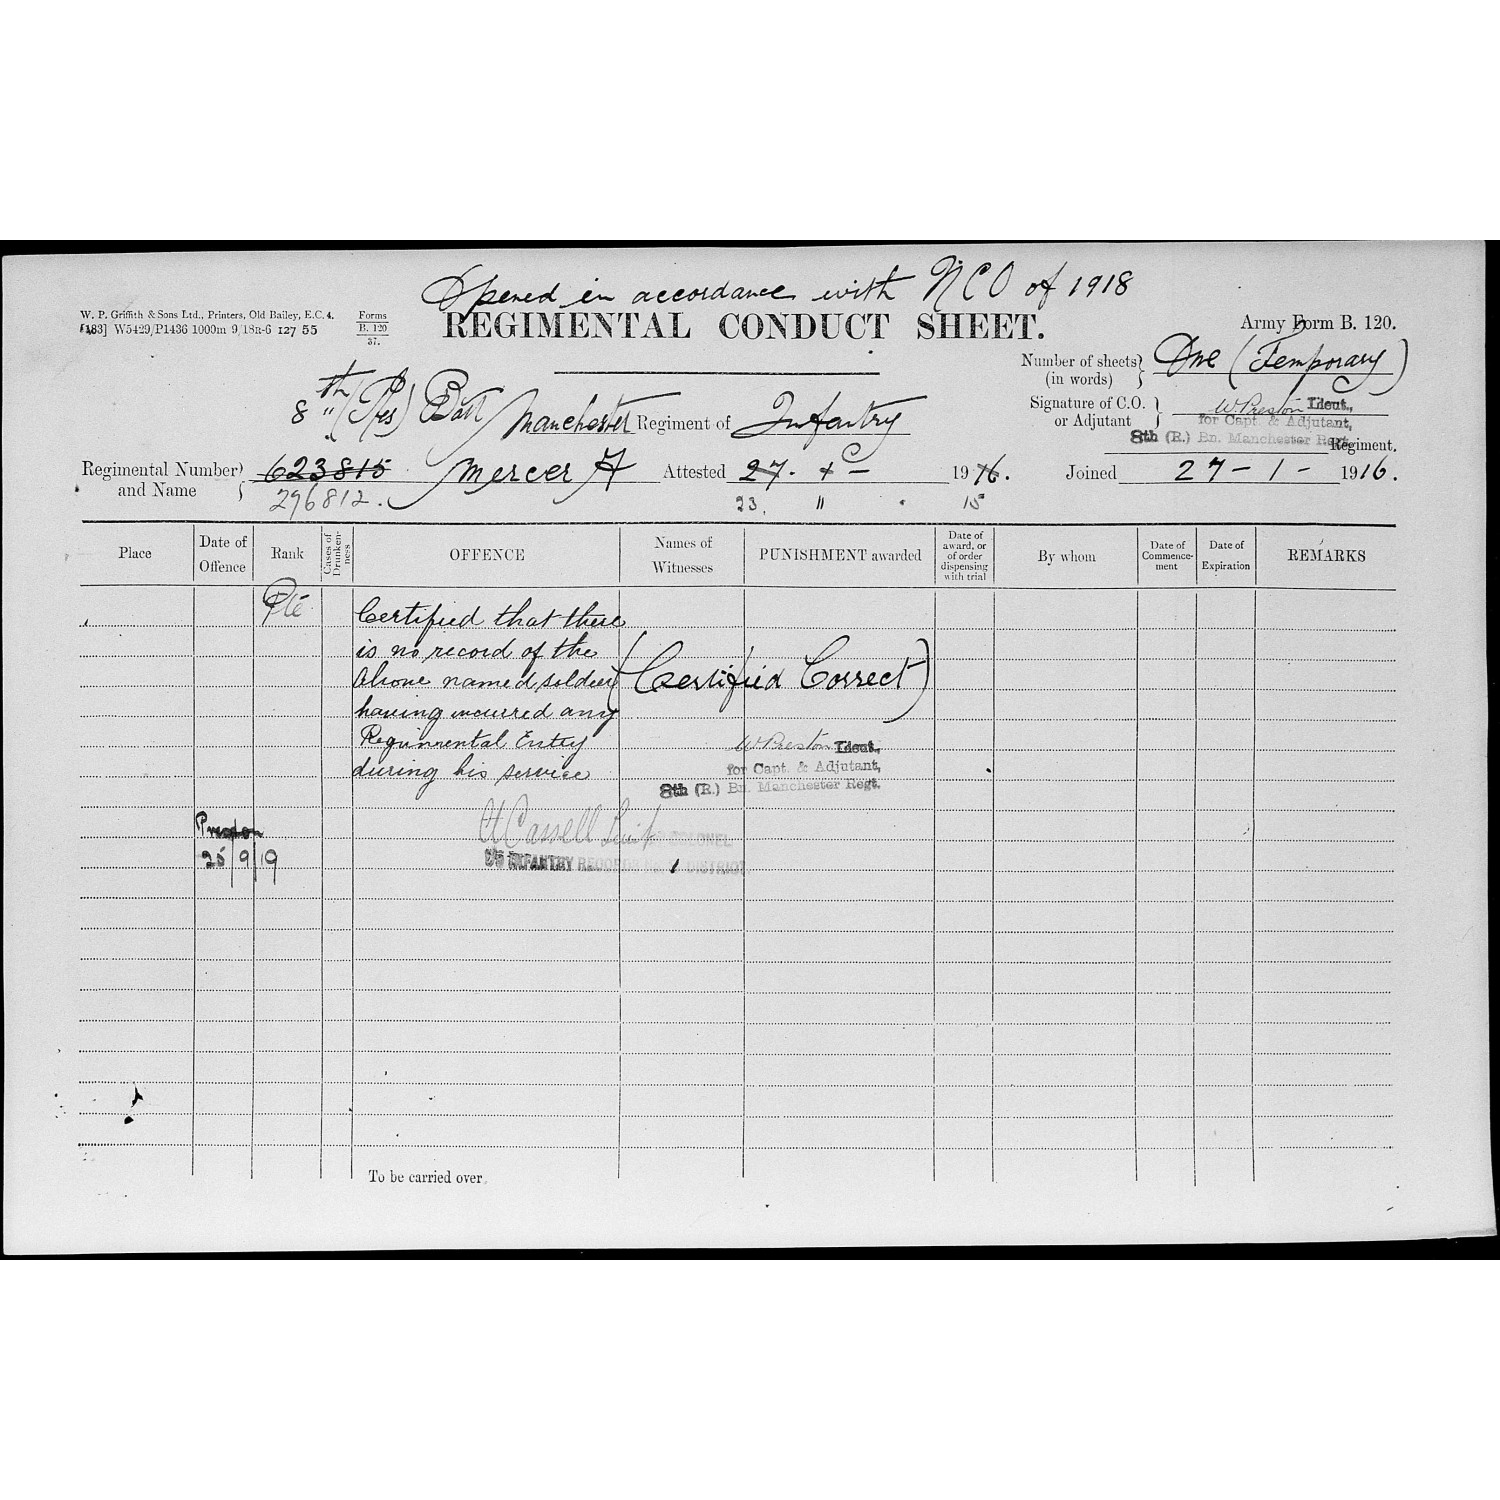 Opened in accordance with NCO of 1918
W. P. Griffith & Sons Ltd., Printers, Old Bailey, E.C. 4.
[183] W5429/P1436 1000m 9/18R-6 127 55
Forms
B. 120
37.
REGIMENTAL CONDUCT SHEET.
Army Form B. 120.
Number of sheets (in words) One (Temporary)
8th (Res) Batt Manchester Regiment of Infantry
Signature of C.O. or Adjutant W Preston Lieut.,
for Capt. & Adjutant,
8th (R.) Bn. Manchester Regt. Regiment.
Regimental Number and Name 623815 Mercer A Attested 27. 1916. Joined 27-1-1916.
296812. 23. " 15
Place
Date of Offence
Rank
Cases of Drunkenness
OFFENCE
Names of Witnesses
PUNISHMENT awarded
Date of award, or of order dispensing with trial
By whom
Date of Commencement
Date of Expiration
REMARKS
Pte
Certified that there
is no record of the
above named soldier
having incurred any
Regimental Entry
during his service
(Certified Correct)
W Preston Lieut.,
for Capt. & Adjutant,
8th (R.) Bn. Manchester Regt.
Preston
25/9/19
COLONEL
INFANTRY RECORDS DISTRICT
To be carried over